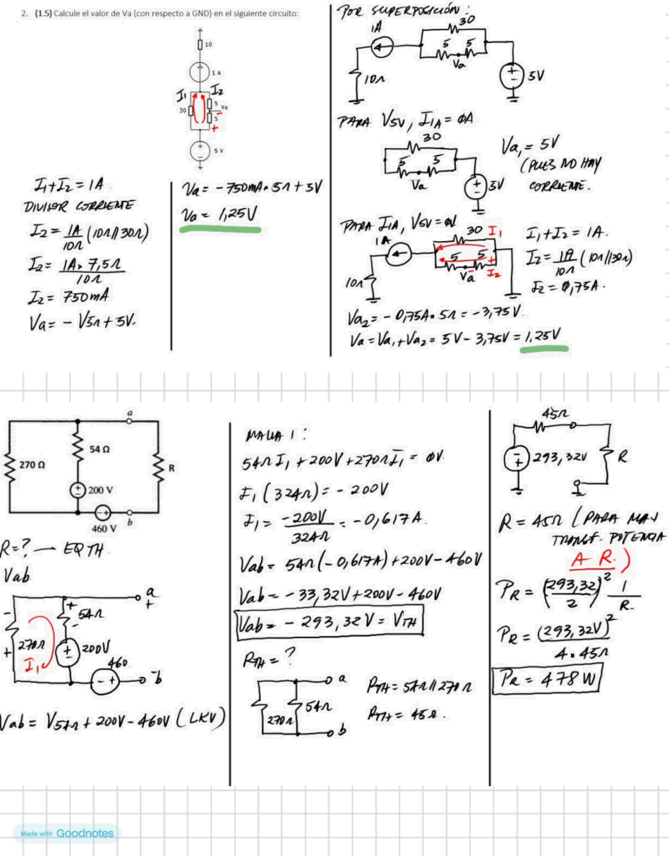 2. (1.5) Calcule el valor de Va (con respecto a GND) en el siguiente circuito:
10
1 A
I1 I2
30
5
Va
5
5 V
I1+I2 = 1A
DIVISOR CORRIENTE
I2 = 1A/10Ω (10Ω//30Ω)
I2 = 1A * 7,5Ω / 10Ω
I2 = 750mA
Va = - V5Ω + 5V.
Va = -750mA * 5Ω + 5V
Va = 1,25V
POR SUPERPOSICIÓN:
1A
30
5 5
Va
10Ω
5V
PARA V5V, I1A = ØA
30
5 5
Va
5V
Va1 = 5V
(PUES NO HAY
CORRIENTE.
PARA I1A, V5V = ØV
1A
30 I1
5 5
Va I2
10Ω
I1+I2 = 1A.
I2 = 1A/10Ω (10Ω//30Ω)
I2 = 0,75A.
Va2 = - 0,75A * 5Ω = -3,75V.
Va = Va1 + Va2 = 5V - 3,75V = 1,25V
a
54 Ω
270 Ω
R
200 V
460 V
b
R=? → EQ TH
Vab
a
+
54Ω
270Ω
I1
200V
460
- b
Vab = V54Ω + 200V - 460V (LKV)
MALLA 1:
54Ω I1 + 200V + 270Ω I1 = ØV.
I1 (324Ω) = - 200V
I1 = -200V / 324Ω = -0,617A.
Vab = 54Ω(-0,617A) + 200V - 460V
Vab = - 33,32V + 200V - 460V
Vab = - 293,32V = VTH
RTH = ?
a
54Ω
270Ω
b
RTH = 54Ω//270Ω
RTH = 45Ω.
45Ω
293,32V
R
R = 45Ω (PARA MAX
TRANSF. POTENCIA
A R.)
PR = (293,32/2)² 1/R.
PR = (293,32V)² / 4 * 45Ω
PR = 478W
Made with Goodnotes